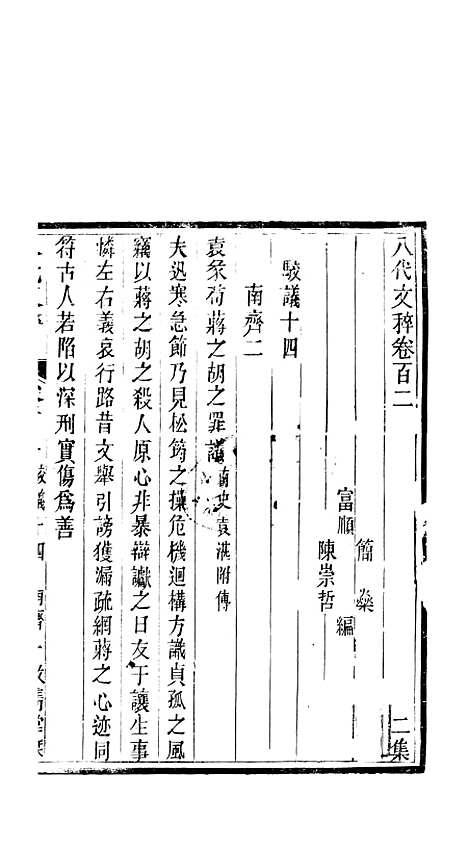 八代文稡卷百二 二集
簡燊
富順 編
陳崇哲
駁議十四
南齊二
袁彖荀蔣之胡之罪議南史袁湛附傳
夫迅寒急節乃見松筠之操危機迴構方識貞孤之風
竊以蔣之胡之殺人原心非暴辯讞之日友于讓生事
憐左右義哀行路昔文舉引謗獲漏疏網蔣之心迹同
符古人若陷以深刑實傷爲善